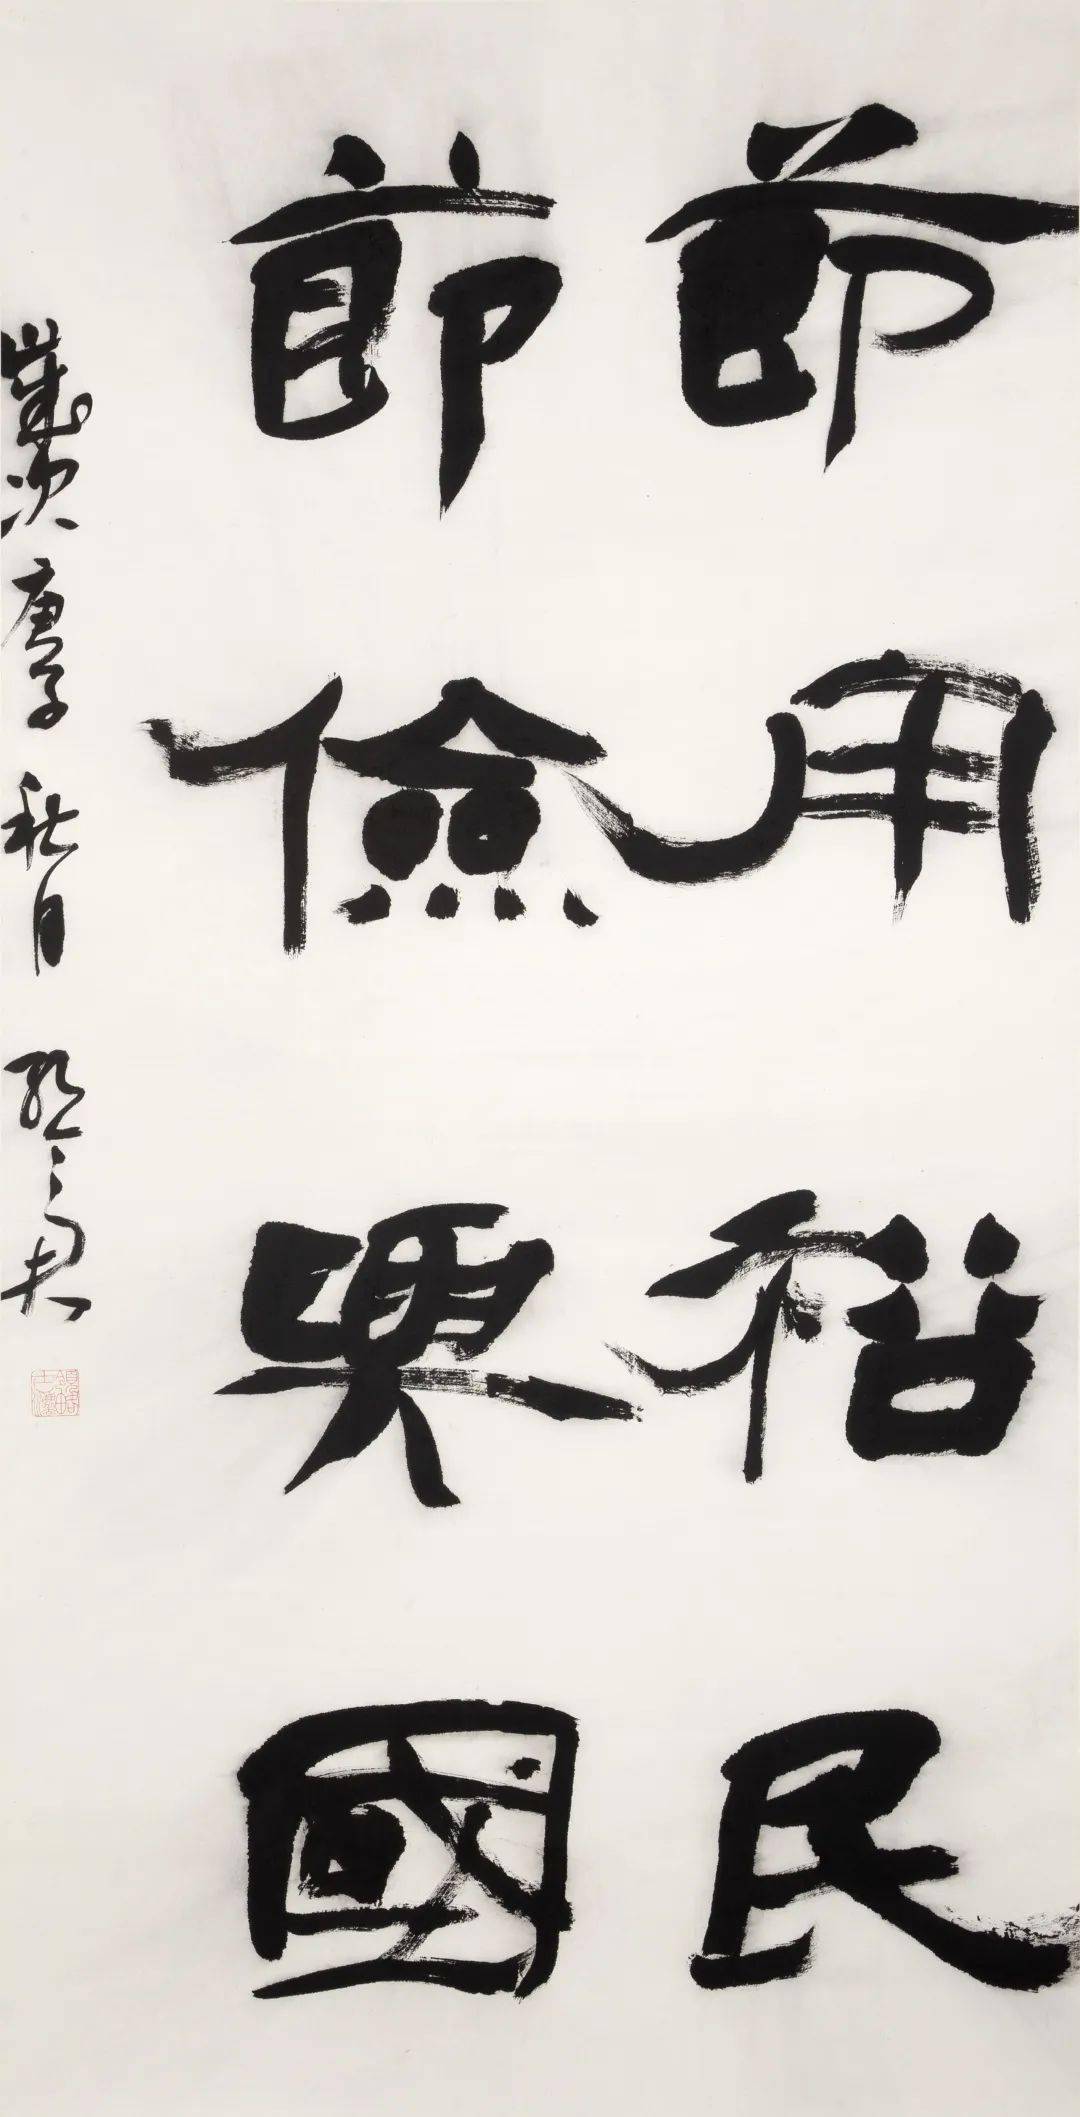 節用裕民
節儉興國
歲次庚子秋月